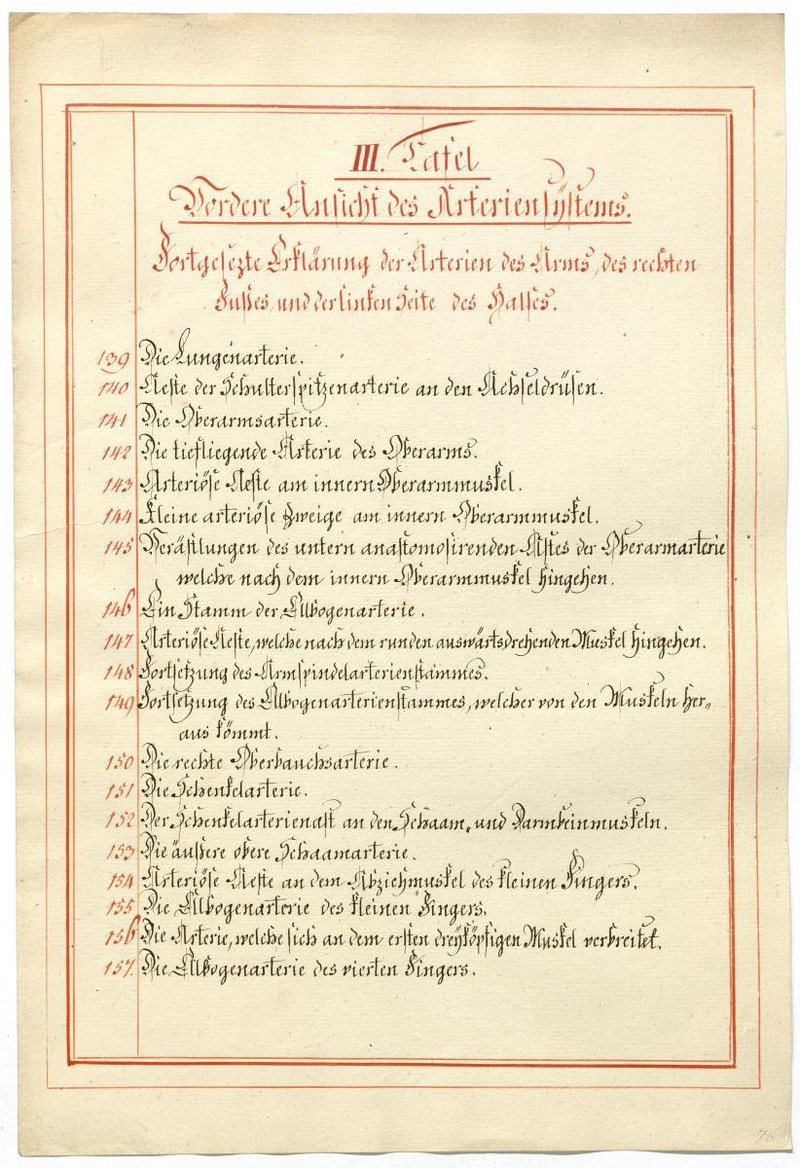 III. Tafel
Vordere Ansicht des Arteriensÿstems.
Fortgesezte Erklärung der Arterien des Arms, des rechten
Fußes, und der linken Seite des Halses.
139 Die Lungenarterie.
140 Aeste der Schulterspitzenarterie an den Achseldrüsen.
141 Die Oberarmsarterie.
142 Die tiefliegende Arterie des Oberarms.
143 Arteriöse Aeste am innern Oberarmmuskel.
144 Kleine arteriöse Zweige am innern Oberarmmuskel.
145 Verästlungen des untern anastomosirenden Astes der Oberarmarterie
welche nach dem innern Oberarmmuskel hingehen.
146 Ein Stamm der Ellbogenarterie.
147 Arteriöse Aeste, welche nach dem runden auswärtsdrehenden Muskel hingehen.
148 Fortsetzung des Armspindelarterienstammes.
149 Fortsetzung des Ellbogenarterienstammes, welcher von den Muskeln her„
aus kömmt.
150 Die rechte Oberbauchsarterie.
151 Die Schenkelarterie.
152 Der Schenkelarterienast an den Schaam„ und Darmbeinmuskeln.
153 Die äußere obere Schaamarterie.
154 Arteriöse Aeste an dem Abziehmuskel des kleinen Fingers.
155 Die Ellbogenarterie des kleinen Fingers.
156 Die Arterie, welche sich an dem ersten dreÿköpfigen Muskel verbreitet.
157. Die Ellbogenarterie des vierten Fingers.
76